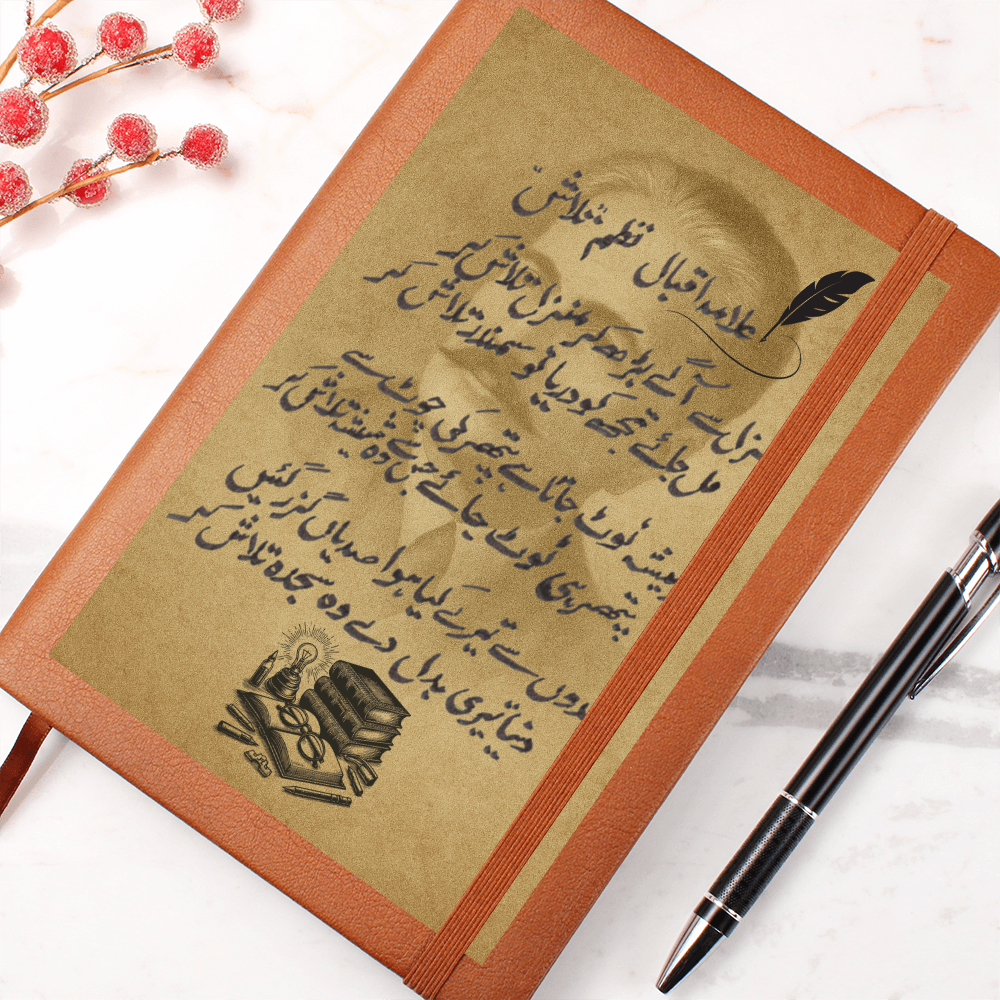 علامہ اقبال نظم "تلاش"
نزل سے آگے بڑھ کر منزل تلاش کر
مل جائے تجھ کو دریا تو سمندر تلاش کر
یشہ ٹوٹ جاتا ہے پتھر کی چوٹ سے
پتھر ہی ٹوٹ جائے جس سے وہ شیشہ تلاش کر
دوں سے تیرے کیا ہوا صدیاں گزر گئیں
دنیا تیری بدل دے وہ سجدہ تلاش کر